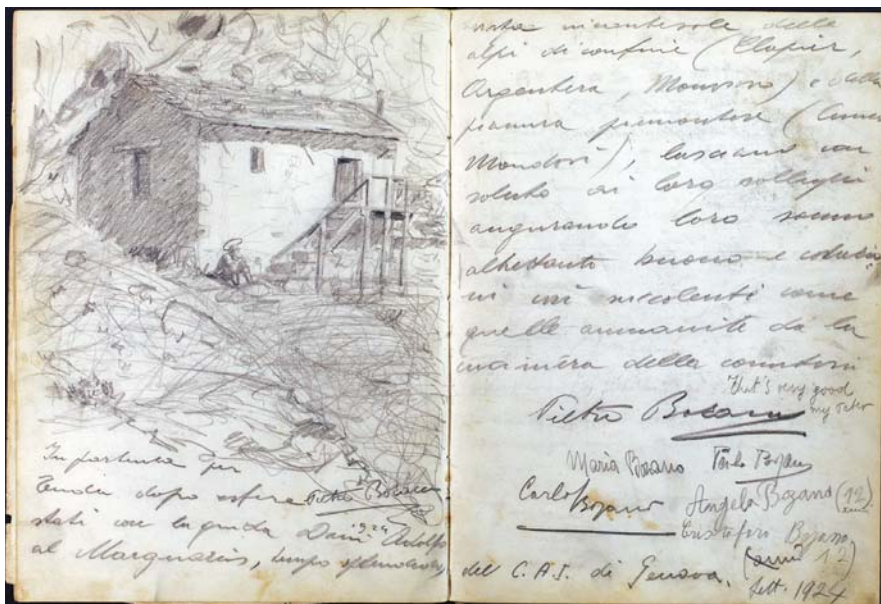 In partenza per
Tenda dopo essere
Pietro Bozano
1924
stati con la guida Dani Adolfo
al Marguareis, tempo splendido,
vista incantevole della
alpi di confine (Clapier,
Argentera, Monviso) e dalla
pianura piemontese (Cuneo
Mondovì), lasciano un
saluto ai loro colleghi
augurando loro sonno
altrettanto buono e colazio
ni così succolenti come
quelle ammanite da la
della
That's very good
my
Pietro Bozano
Maria Bozano
Bozano
Carlo
Bozano
Angela Bozano (12)
anni
Cristoforo Bozano
(anni 12)
del C.A.I. di Genova.
Sett. 1924